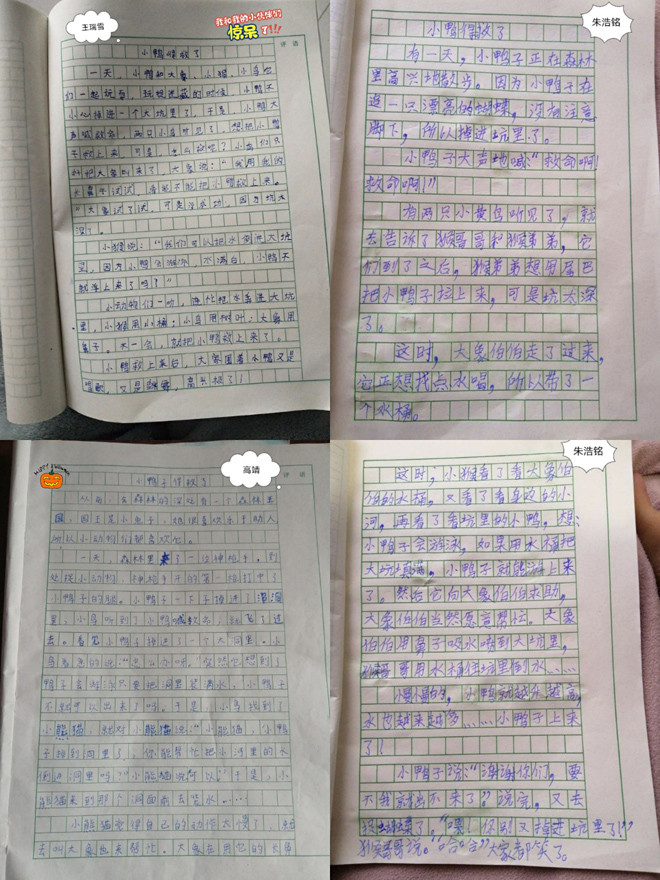 王瑞雪
我和我的小伙伴们
惊呆了!!!
评语
小鸭得救了
一天，小鸭和大象、小猴、小鸟它
们一起玩
心掉进一个大坑里了。于是，小鸭大
声喊救命，两只小鸟听见了，想把小鸭
子救上来，可是
的把大象叫来了，大象说："我用我的
大鼻子试试，看能不能把小鸭救上来。
"大象试了试，可是没成功，因为坑太
深了。
小猴说："我们可以把水倒进大坑
里，因为小鸭会游泳，水满后，小鸭不
就浮上来了吗？"
小动物们一听，连忙把水弄进大坑
里，小猴用水桶；小鸟用树叶；大象用
鼻子。不一会，就把小鸭救上来了。
小鸭救上来后，大家围着小鸭又是
唱歌，又是跳舞，高兴极了！
朱浩铭
小鸭得救了
有一天，小鸭子正在森林
里高兴地散步。因为小鸭子在
追一只漂亮的蝴蝶，没有注意
脚下，所以掉进坑里了。
小鸭子大声地喊："救命啊！
救命啊！"
有两只小黄鸟听见了，就
去告诉了猴哥哥和猴弟弟，它
们到了之后，猴弟弟想用尾巴
把小鸭子拉上来，可是坑太深
了。
这时，大象伯伯走了过来，
它正想找点水喝，所以带了一
个水桶。
高靖
评语
小鸭子得救了
从前，在森林的深处有一个森林王
国，国王是小兔子，
所以小动物们都喜欢它。
一天，森林里来了一位神枪手。到
处找小动物，神枪手开的第一枪打中了
小鸭子的腿。小鸭子一下子掉进了
里，小鸟听到了小鸭喊救命，就飞了过
去。看见小鸭子掉进了一个大洞里。小
鸟着急的说："怎么办呢。"忽然它想到了
鸭子会游泳只要把洞里装满水，小鸭子
不就可以出来了吗。于是，小鸟找到了
小熊猫，就对小熊猫说："小熊猫，小鸭
子掉到洞里了，你能帮忙把小河里的水
倒进洞里吗？"小熊猫说："可以"于是，小
熊猫来到那个洞面前去装水……
小熊猫觉得自己的动作太慢了，就
去叫大象也来帮忙。大象在用它的长鼻
朱浩铭
这时，小猴看了看大象伯
伯的水桶，又看了看身边的小
河，再看了看坑里的小鸭，想：
小鸭子会游泳，如果用水桶把
大坑填满，小鸭子就能游上来
了。然后它向大象伯伯求助，
大象伯伯当然愿意帮忙。大象
伯伯用鼻子吸水喷到大坑里，
猴哥哥用水桶往坑里倒水……
慢慢的，小鸭就越升越高，
水也越来越多……小鸭子上来
了！
小鸭子说："谢谢你们，要
不我就出不来了。"说完，又去
捉蝴蝶了，"喂！你别又掉进坑里了！"
猴哥哥说。"哈哈哈"大家都笑了。